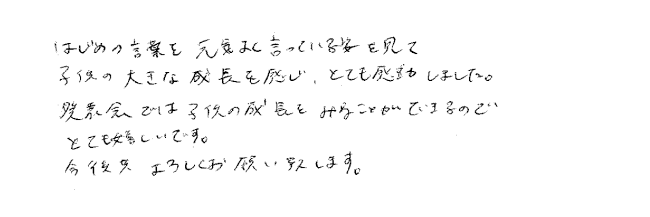 はじめの言葉を 元気よく言っている姿を見て
子供の大きな成長を感じ、とても感動しました。
発表会では子供の成長をみることができるので
とても嬉しいです。
今後共よろしくお願い致します。